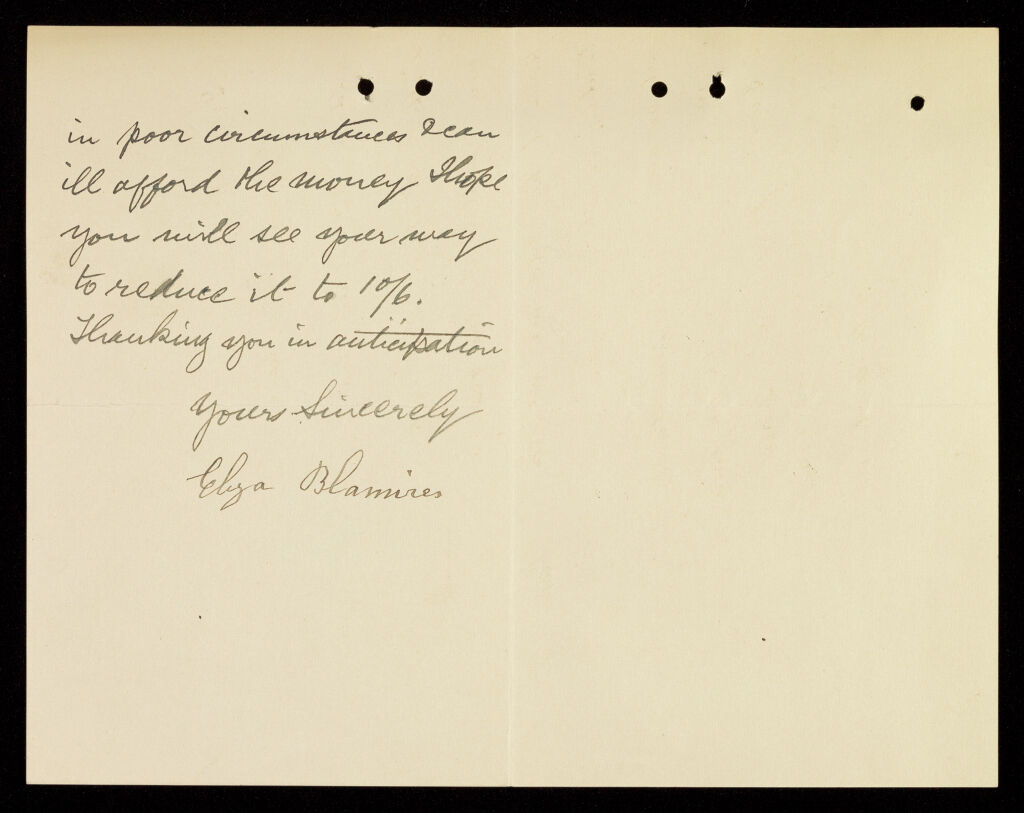 in poor circumstances I can
ill afford the money I hope
you will see your way
to reduce it to 10/6.
Thanking you in anticipation
Yours Sincerely
Eliza Blamires